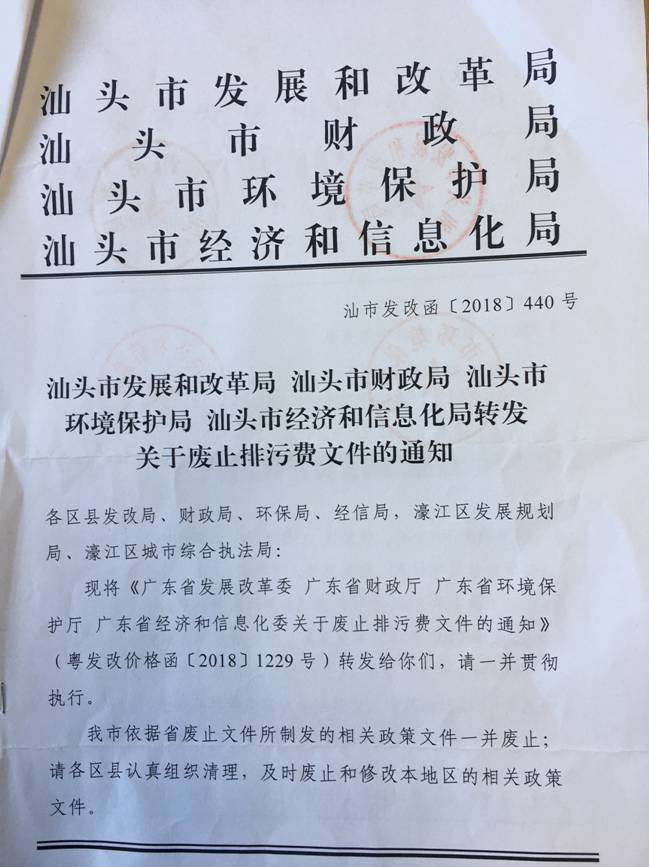 汕头市发展和改革局
汕头市财政局
汕头市环境保护局
汕头市经济和信息化局
汕市发改函〔2018〕440 号
汕头市发展和改革局 汕头市财政局 汕头市
环境保护局 汕头市经济和信息化局转发
关于废止排污费文件的通知
各区县发改局、财政局、环保局、经信局，濠江区发展规划
局、濠江区城市综合执法局：
现将《广东省发展改革委 广东省财政厅 广东省环境保
护厅 广东省经济和信息化委关于废止排污费文件的通知》
（粤发改价格函〔2018〕1229 号）转发给你们，请一并贯彻
执行。
我市依据省废止文件所制发的相关政策文件一并废止；
请各区县认真组织清理，及时废止和修改本地区的相关政策
文件。